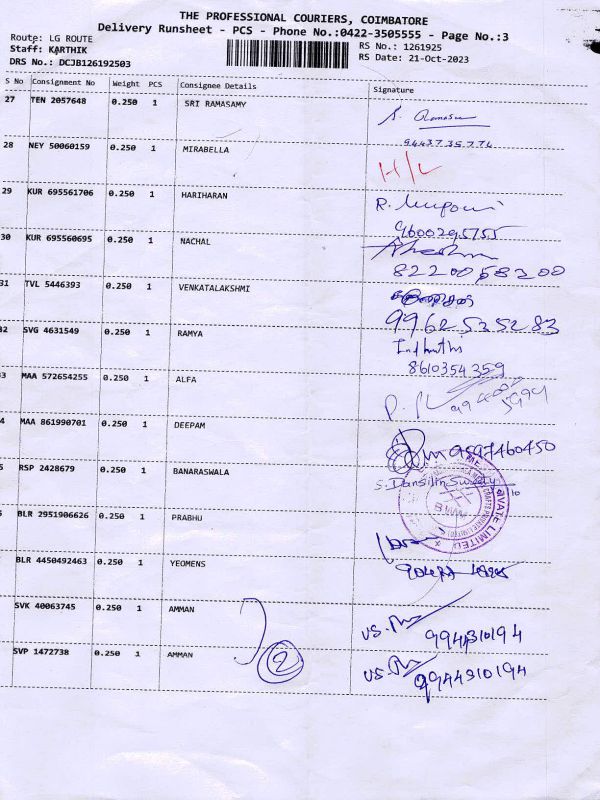 THE PROFESSIONAL COURIERS, COIMBATORE
Delivery Runsheet - PCS - Phone No.:0422-3505555 - Page No.:3
Route: LG ROUTE
Staff: KARTHIK
DRS No.: DCJB126192503
RS No.: 1261925
RS Date: 21-Oct-2023
S No Consignment No Weight PCS Consignee Details Signature
27 TEN 2057648 0.250 1 SRI RAMASAMY
9443735774
28 NEY 50060159 0.250 1 MIRABELLA H/L
29 KUR 695561706 0.250 1 HARIHARAN
9600295755
30 KUR 695560695 0.250 1 NACHAL
8220058200
31 TVL 5446393 0.250 1 VENKATALAKSHMI
9962525283
32 SVG 4631549 0.250 1 RAMYA
8610354359
33 MAA 572654255 0.250 1 ALFA
4 MAA 861990701 0.250 1 DEEPAM 9597460450
5 RSP 2428679 0.250 1 BANARASWALA S. Dansilin Sweety
VATE LIMITED
BLR 2951906626 0.250 1 PRABHU
BLR 4450492463 0.250 1 YEOMENS
SVK 40063745 0.250 1 AMMAN
9944310194
SVP 1472738 0.250 1 AMMAN 2
9944310194